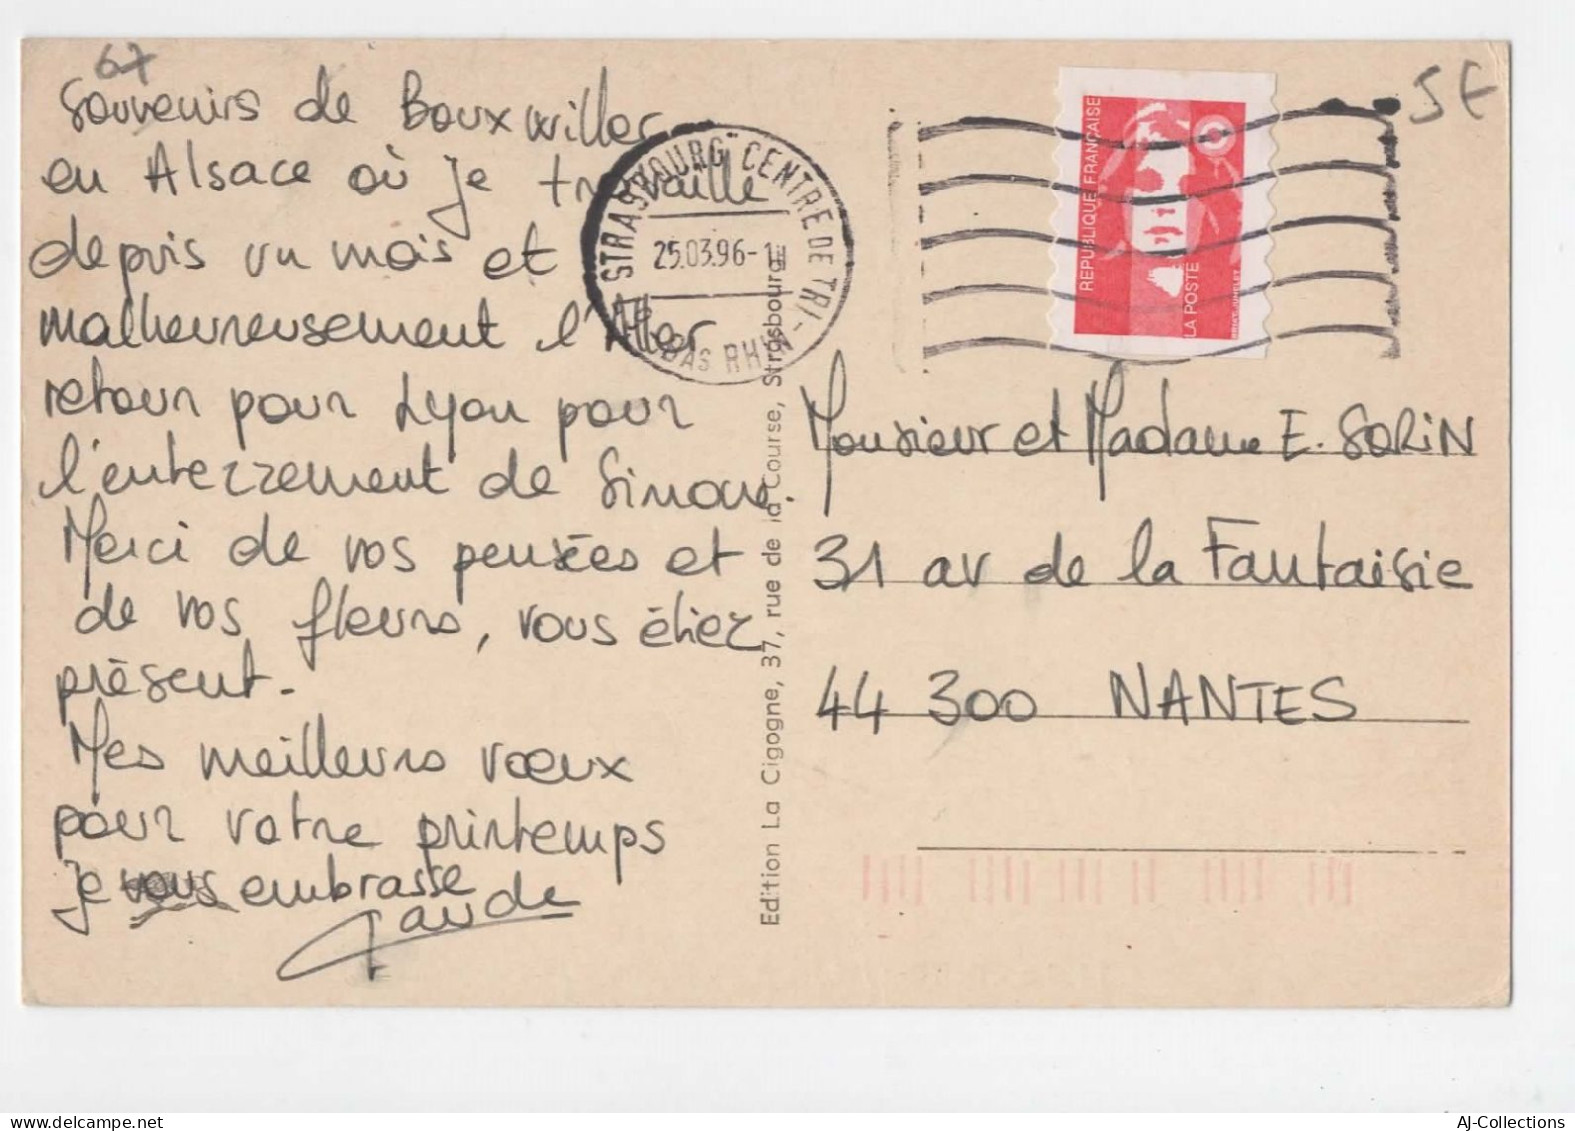 67
Souvenirs de Bouxwiller
en Alsace où je travaille
depuis un mois et
malheureusement l'Aller
retour pour Lyon pour
l'enterrement de Simone.
Merci de vos pensées et
de vos fleurs, vous étiez
présent.
Mes meilleurs vœux
pour votre printemps
je vous embrasse
STRASBOURG CENTRE DE TRI
25.03.96-
BAS RHIN
Edition La Cigogne, 37, rue de la Course, Strasbourg
5€
REPUBLIQUE FRANÇAISE
LA POSTE
Monsieur et Madame E. SORIN
31 av de la Fantaisie
44 300 NANTES
AJ-Collections